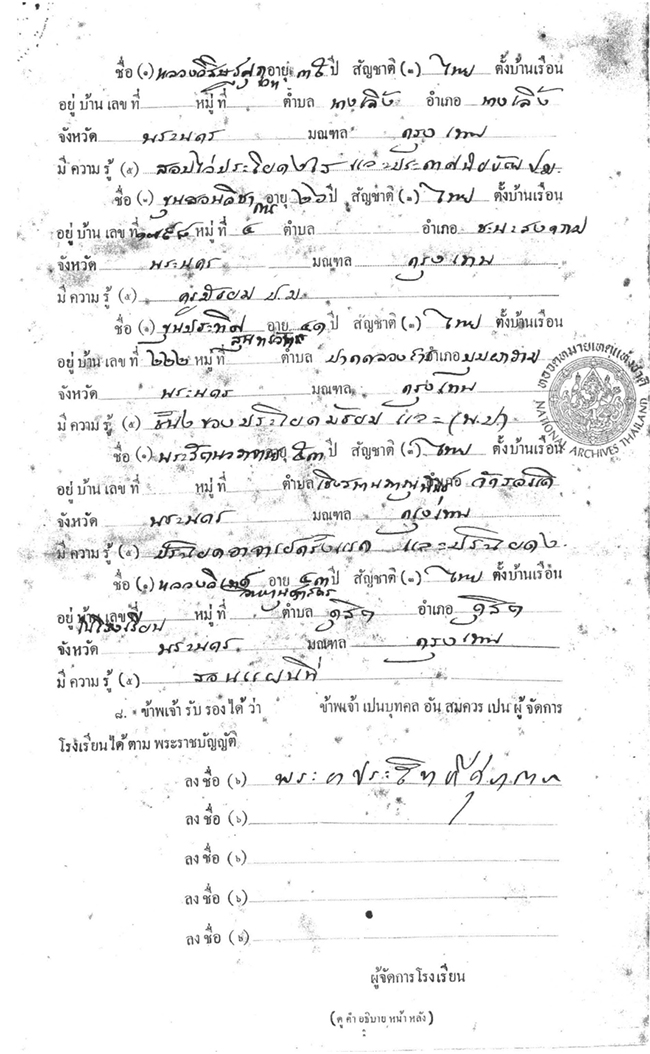 ชื่อ (๑) หลวงวิศิษฐศุภ อายุ ๓๕ ปี สัญชาติ (๓) ไทย ตั้งบ้านเรือน
อยู่ บ้าน เลข ที่ หมู่ ที่ ตำบล นางเลิ้ง อำเภอ นางเลิ้ง
จังหวัด พระนคร มณฑล กรุงเทพ
มี ความ รู้ (๕) สอบไล่ประโยค ๒ ได้ และประกาศนียบัตร ป.ม.
ชื่อ (๑) ขุนสอนวิชา อายุ ๒๖ ปี สัญชาติ (๓) ไทย ตั้งบ้านเรือน
การ
อยู่ บ้าน เลข ที่ หมู่ ที่ ๔ ตำบล อำเภอ ชนะสงคราม
จังหวัด พระนคร มณฑล กรุงเทพ
มี ความ รู้ (๕) ครูมัธยม ป.ม.
ชื่อ (๑) ขุนประทิศ อายุ ๔๑ ปี สัญชาติ (๓) ไทย ตั้งบ้านเรือน
อยู่ บ้าน เลข ที่ ๒๒๒ หมู่ ที่ ตำบล ปากคลอง อำเภอ
จังหวัด พระนคร มณฑล กรุงเทพ
มี ความ รู้ (๕) ชั้น ๒ ของประโยคมัธยม และ (พ.ป.)
ชื่อ (๑) อายุ ๕๓ สัญชาติ (๓) ไทย ตั้งบ้านเรือน
อยู่ บ้าน เลข ที่ หมู่ ที่ ตำบล อำเภอ จักรวรรดิ
จังหวัด พระนคร มณฑล กรุงเทพ
มี ความ รู้ (๕) ประโยคอาจารย์ครั้งแรก และประโยค ๒
ชื่อ (๑) หลวง อายุ ๔๓ ปี สัญชาติ (๓) ไทย ตั้งบ้านเรือน
อยู่ บ้าน เลข ที่ หมู่ ที่ ตำบล ดุสิต อำเภอ ดุสิต
ในโรงเรียน
จังหวัด พระนคร มณฑล กรุงเทพ
มี ความ รู้ (๕) สอนแผนที่
๘. ข้าพเจ้า รับ รอง ได้ ว่า ข้าพเจ้า เปนบุทคล อัน สมควร เปน ผู้ จัดการ
โรงเรียน ได้ ตาม พระราชบัญญัติ
ลง ชื่อ (๖) พระยา
ลง ชื่อ (๖)
ลง ชื่อ (๖)
ลง ชื่อ (๖)
ลง ชื่อ (๖)
ผู้จัดการโรงเรียน
(ดู คำ อธิบาย หน้า หลัง)
หอจดหมายเหตุแห่งชาติ
NATIONAL ARCHIVES THAILAND